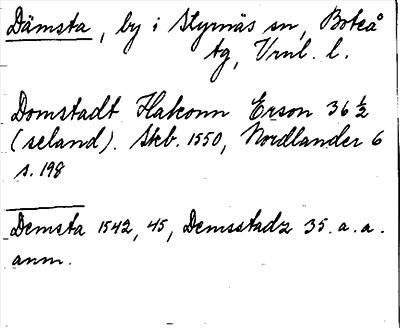 Dämsta, by i Styrnäs sn, Boteå
tg, Vrnl. l.
Domstadt Hakonn Erson 36 ½
(seland). Skb. 1550, Nordlander 6
s. 198
Demsta 1542, 45, Demsstadz 35. a. a.
anm.